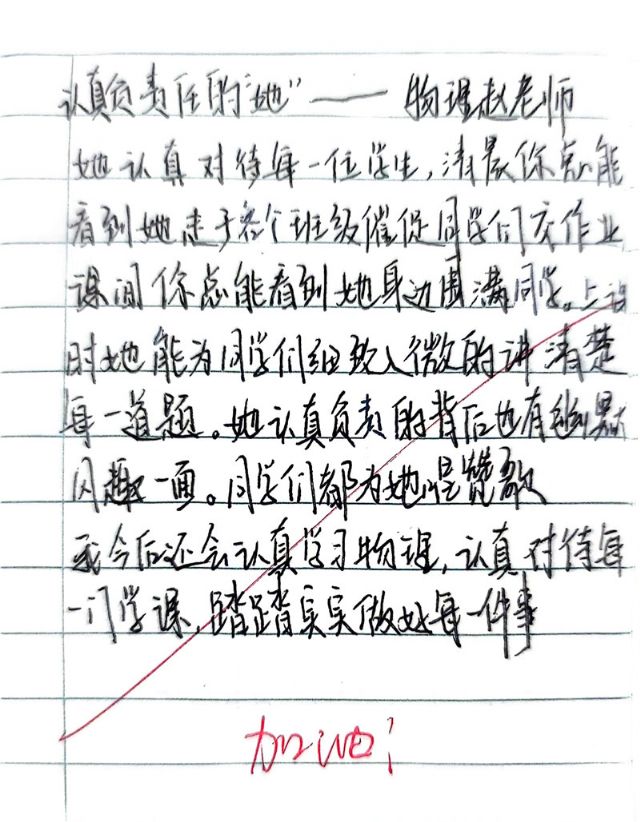 认真负责任的“她”——物理赵老师
她认真对待每一位学生,清晨你总能
看到她走于各个班级催促同学们交作业
课间你总能看到她身边围满同学。上课
时她能为同学们细致入微的讲清楚
每一道题。她认真负责的背后也有幽默
风趣一面。同学们都为她唱赞歌
我今后还会认真学习物理,认真对待每
一门学课,踏踏实实做好每一件事
加油!